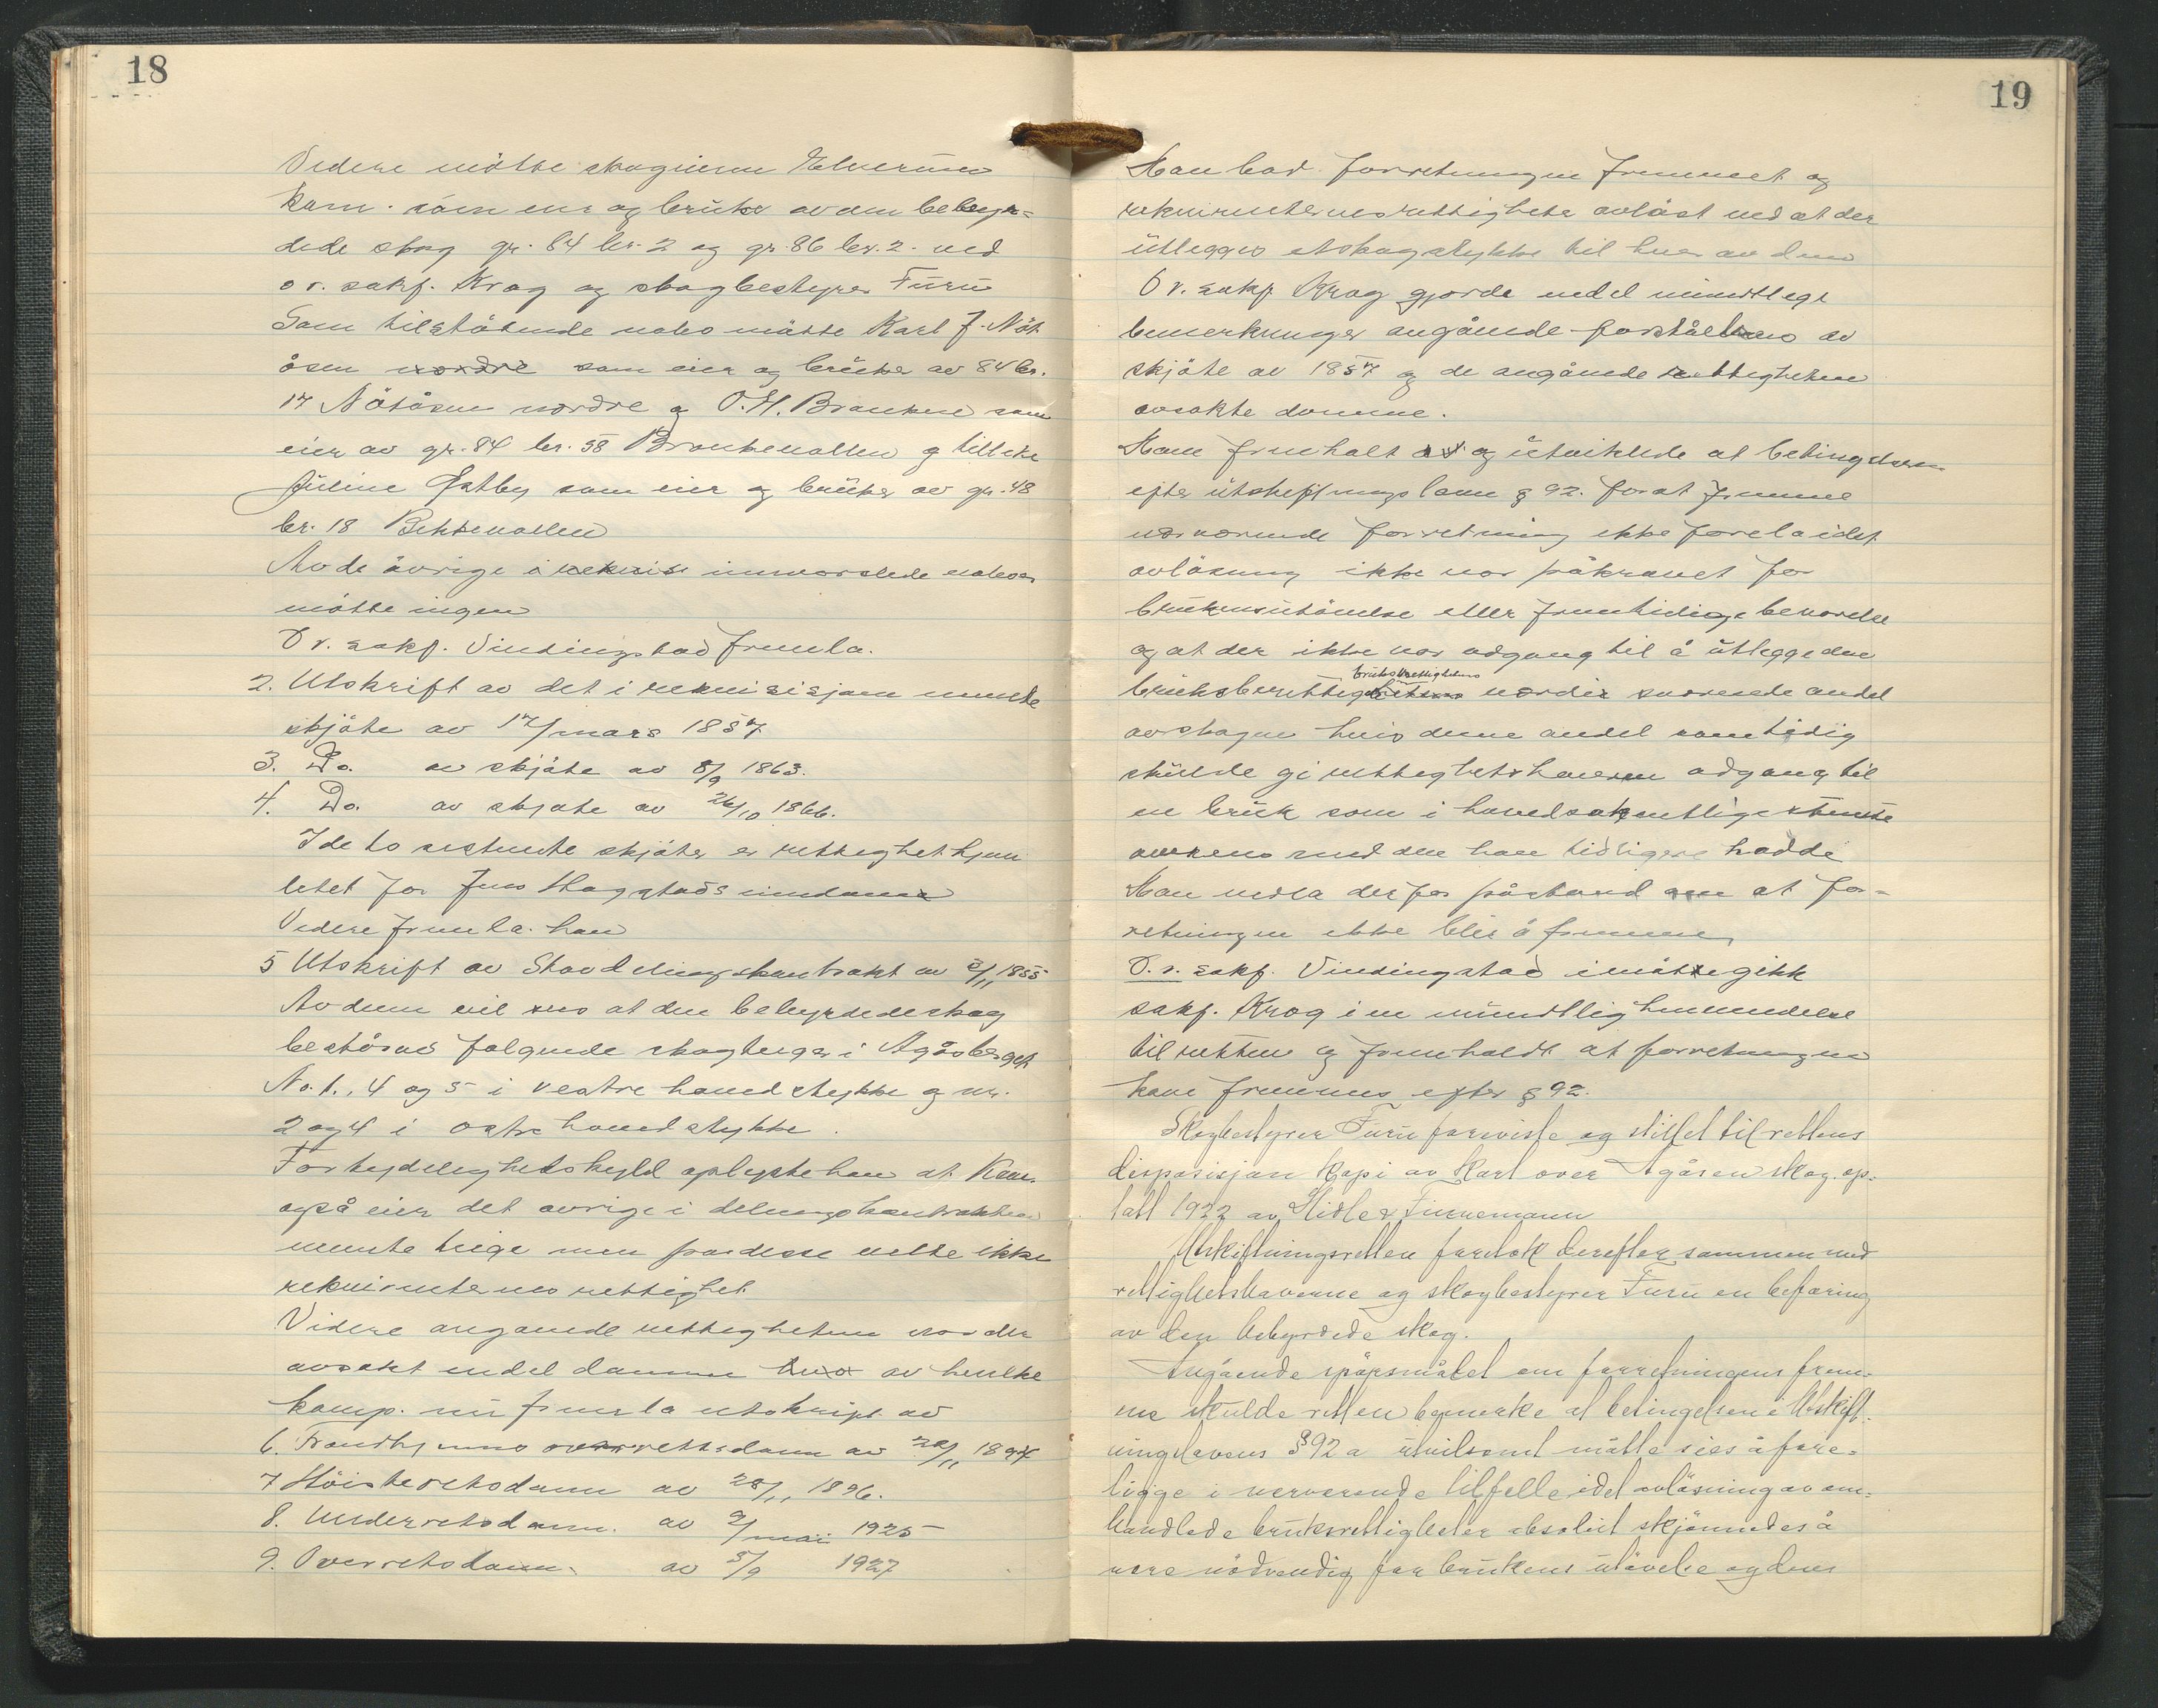 18
Videre møtte skogeieren Elverum
kom. som eier og bruker av den bebyr-
dede skog gr. 84 br. 2 og gr. 86 br. 2. ved
o.r. sakf. Krog og skogbestyrer Furu
Som tilstøtende nabo møtte Karl J. Nöt
åsen som eier og bruker av 84 br.
17 Nötåsen nordre og O. H. Branken som
eier av gr. 84 br. 58 Brankevollen og tillike
Juline Østby som eier og bruker av gr. 48
br. 18 Bekkevollen
Av de øvrige i innvarslede naboer
møtte ingen
O.r. sakf. Vindingstad fremla.
2. Utskrift av det i rekvisisjonen nevnte
skjøte av 17/mars 1857
3. Do. av skjøte av 8/9 1863.
4. Do. av skjøte av 26/10 1866.
I de to sistnevnte skjøter er rettighet hjem
letet for Jens Hagstads
Videre fremla han
5 Utskrift av Skovdelingskontrakt av 2/11 1855
Av denne vil sees at den bebyrdede skog
består av følgende skogteiger i Agåsberget
No. 1, 4 og 5 i vestre hovedstykke og nr.
2 og 4 i østre hovedstykke.
For tydelighetskyld oplyste han at Kom.
også eier det øvrige i delingskontrakten
nevnte teige men for disse velte ikke
rekvirentenes rettighet
Videre angående rettigheten var der
avsakt endel domme av hvilke
komp. nu fremla utskrift av
6. Trondhjems overrettsdom av 20/11 1894
7 Høisteretsdom av 28/11 1896.
8. Underretsdom. av 9/mai 1925
9. Overretsdom. av 5/9 1927
19
Man bad forretningen fremmet og
rekvirentenes rettigheter avløst ved at der
utlegges et skogstykke til hver av dem
O.r. sakf. Krog gjorde endel mundtlige
bemerkninger angående forståelsen av
skjøte av 1857 og de angående rettigheten
avsakte domme.
Man fremholt og utviklede at betingelsen
efter utskiftningsloven § 92. for at fremme
nærværende forretning ikke forelå idet
avløsning ikke var påkrævet for
bruksrettighetens
brukens utøvelse eller fremtidige bevarelse
og at der ikke var adgang til å utlegge den
bruksberettigede verdi svarende andel
av skogen hvis denne andel samtidig
skulde gi rettighetshaveren adgang til
en bruk som i hovedsakentlig stemte
overens med den han tidligere hadde
Man nedla derfor påstand om at for-
retningen ikke blir å fremme
O.r. sakf. Vindingstad imøtegikk
sakf. Krog i en mundtlig henvendelse
til retten og fremholdt at forretningen
kan fremmes efter § 92.
Skogbestyrer Furu foreviste og stillet til rettens
disposisjon kopi av kart over Agåsen skog op-
tatt 1922 av Midler Finnemann
Utskiftningsretten foretok derefter sammen med
rettighetshaverne og skogbestyrer Furu en befaring
av den bebyrdede skog.
Angående spørsmålet om forretningens frem-
me skulde retten bemerke at betingelsen i Utskift-
ningslovens § 92 a utvilsomt måtte sies å fore-
ligge i nærværende tilfelle idet avløsning av om-
handlede bruksrettigheter absolut skjønnedes å
være nødvendig for brukens utøvelse og dens